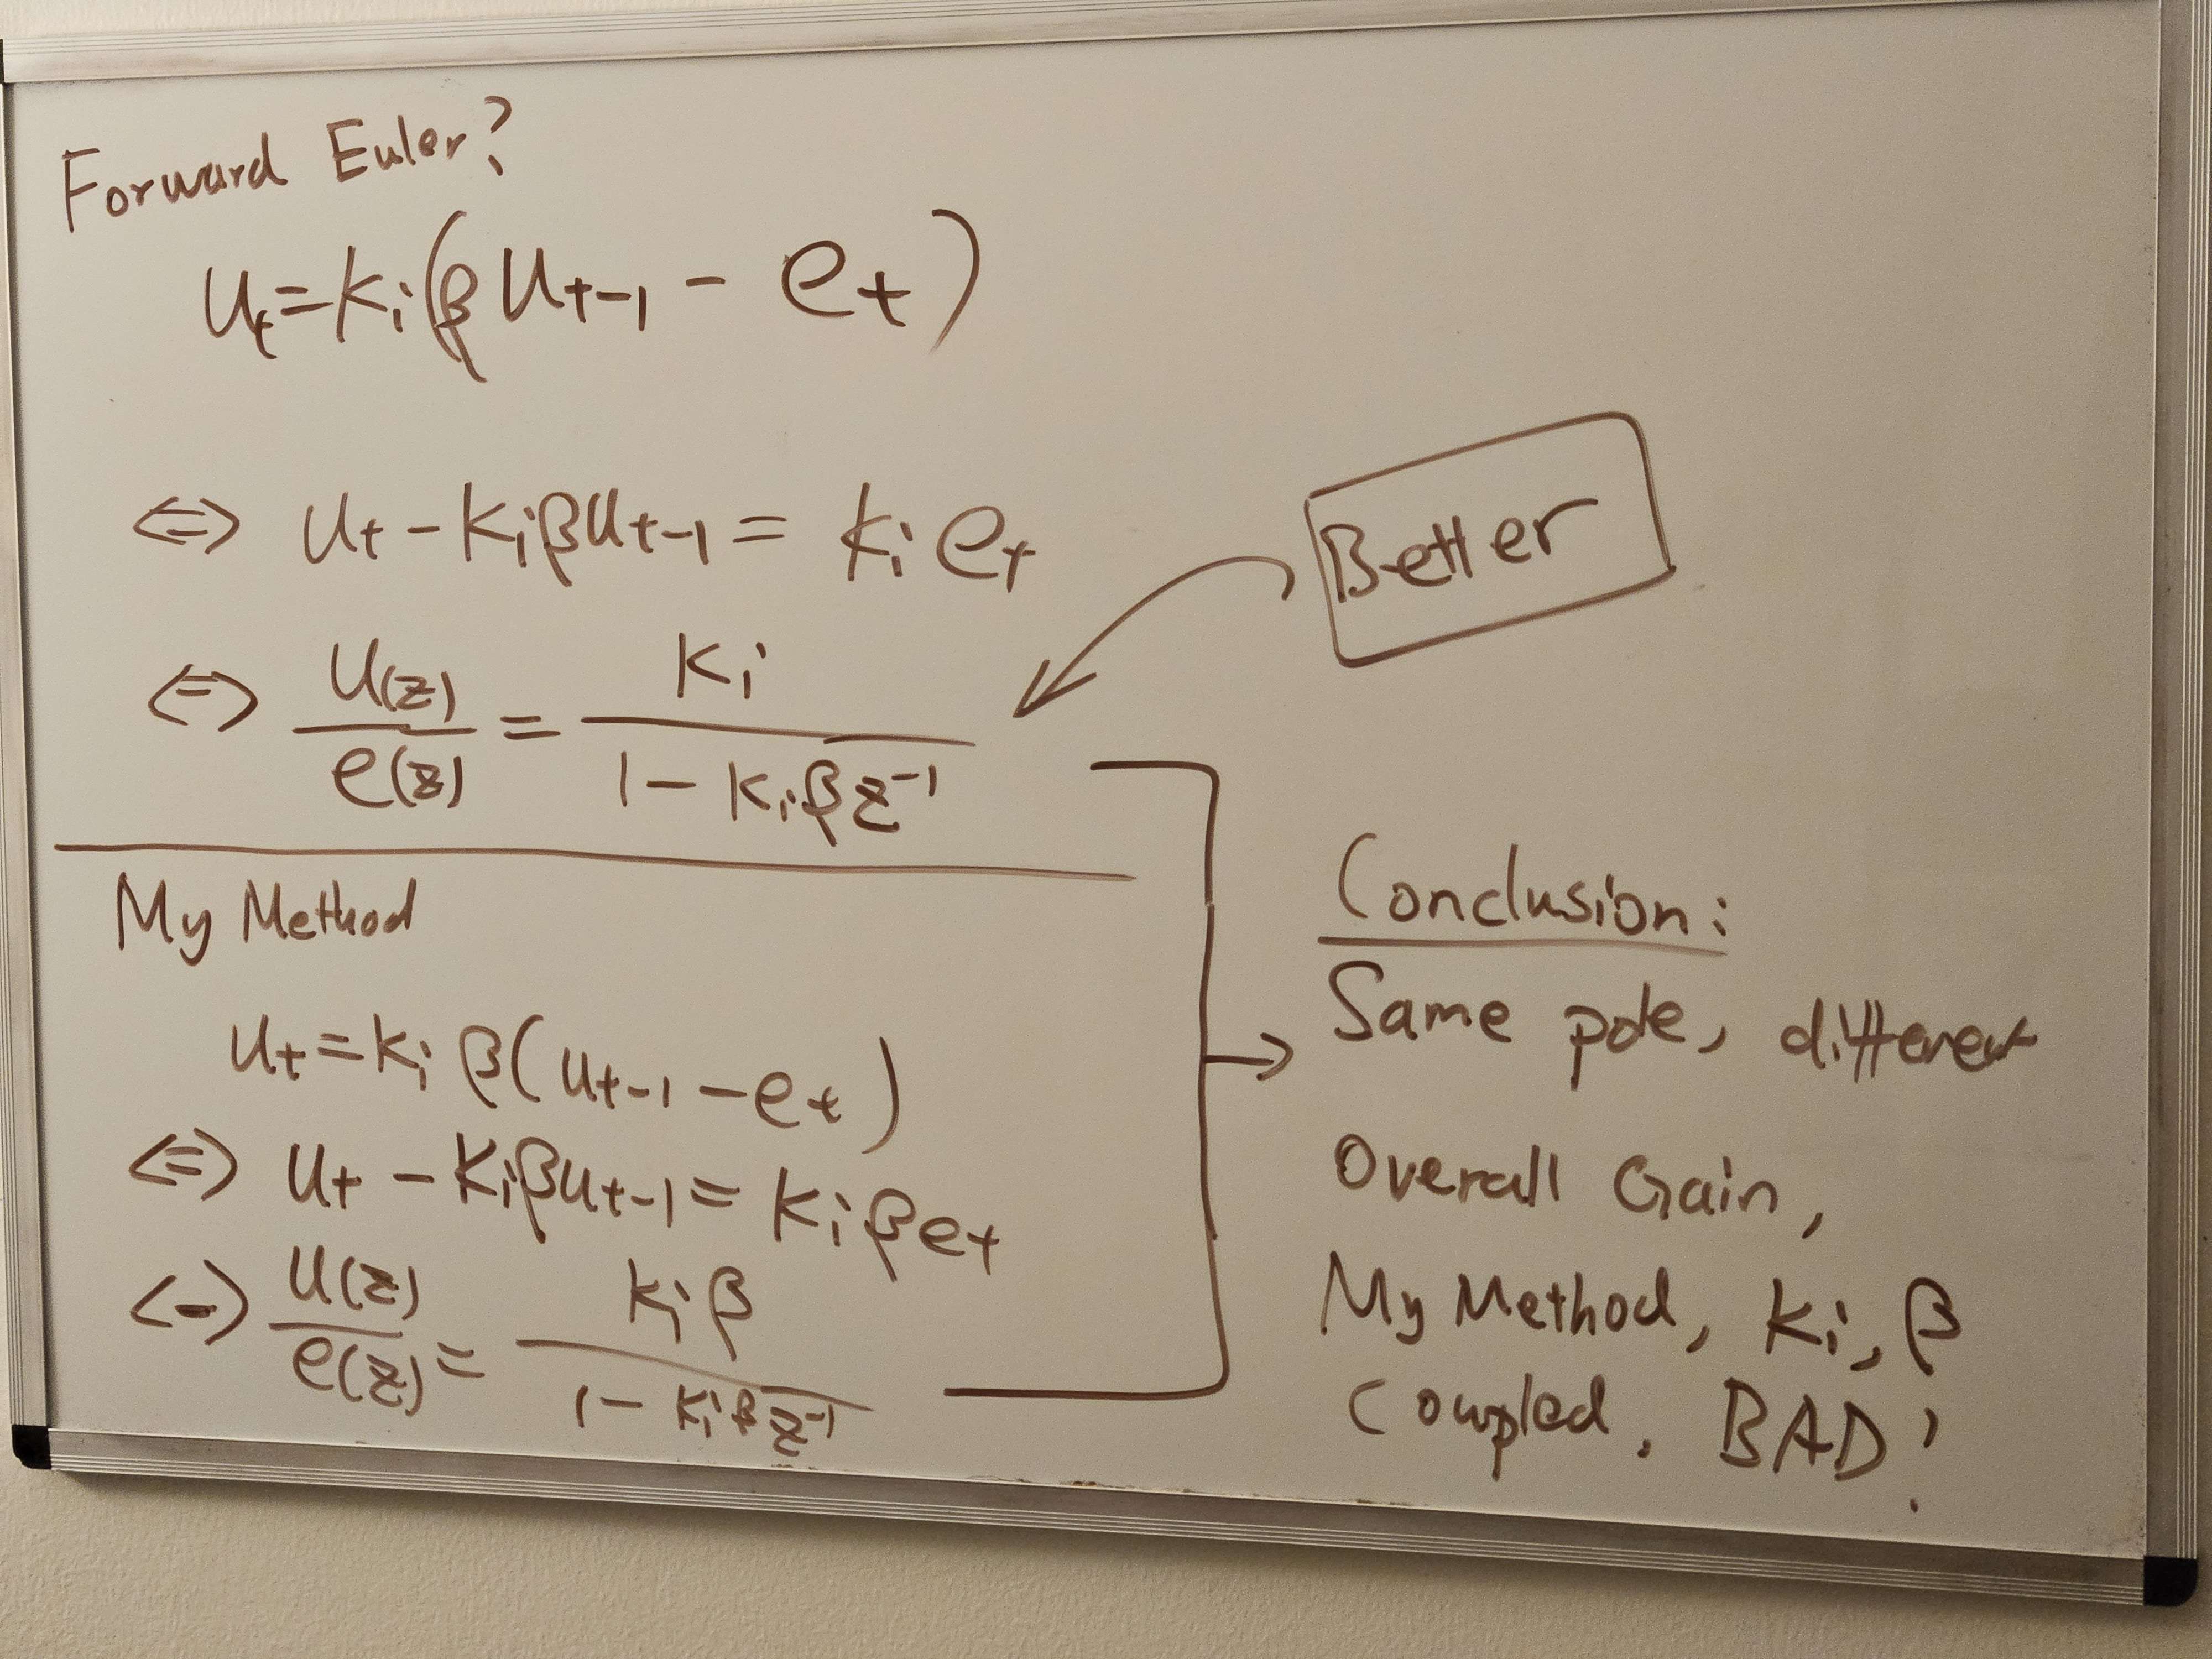 Forward Euler?
Ut=Ki(βUt-1 - et)
<=> Ut - KiβUt-1 = Ki et
<=> U(z)/e(z) = Ki/(1 - Kiβz^-1)
Better
My Method
Ut=Ki β(Ut-1 - et)
<=> Ut - KiβUt-1 = Ki β et
<-> U(z)/e(z) = Ki β/(1 - Kiβz^-1)
Conclusion:
Same pole, different
Overall Gain,
My Method, Ki, β
Coupled. BAD!